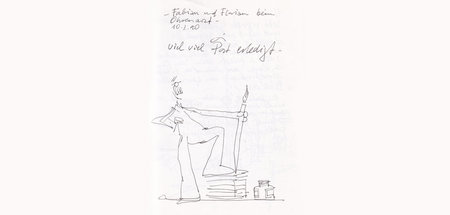 - Fabian und Florian beim
Ohrenarzt -
10.2.10
viel viel Post erledigt -